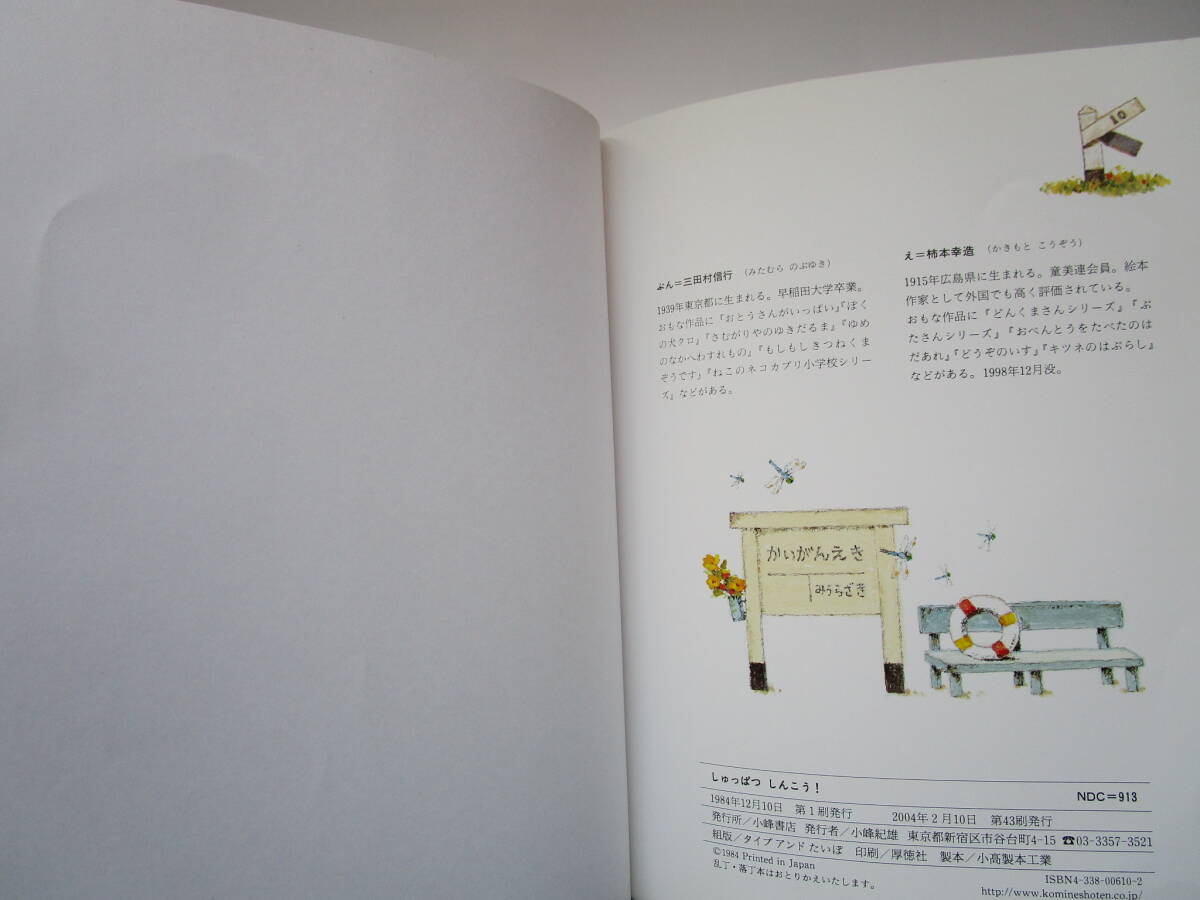 10
ぶん＝三田村信行 （みたむら のぶゆき）
1939年東京都に生まれる。早稲田大学卒業。
おもな作品に『おとうさんがいっぱい』『ぼく
の犬クロ』『さむがりやのゆきだるま』『ゆめ
のなかへわすれもの』『もしもしきつねくま
ぞうです』『ねこのネコカブリ小学校シリー
ズ』などがある。
え＝柿本幸造 （かきもと こうぞう）
1915年広島県に生まれる。童美連会員。絵本
作家として外国でも高く評価されている。
おもな作品に『どんくまさんシリーズ』『ぶ
たさんシリーズ』『おべんとうをたべたのは
だあれ』『どうぞのいす』『キツネのはぶらし』
などがある。1998年12月没。
かいがんえき
みうらざき
しゅっぱつ しんこう！ NDC＝913
1984年12月10日 第1刷発行 2004年2月10日 第43刷発行
発行所／小峰書店 発行者／小峰紀雄 東京都新宿区市谷台町4-15 ☎03-3357-3521
組版／タイプ アンド たいぽ 印刷／厚徳社 製本／小髙製本工業
©1984 Printed in Japan ISBN4-338-00610-2
乱丁・落丁本はおとりかえいたします。 http://www.komineshoten.co.jp/